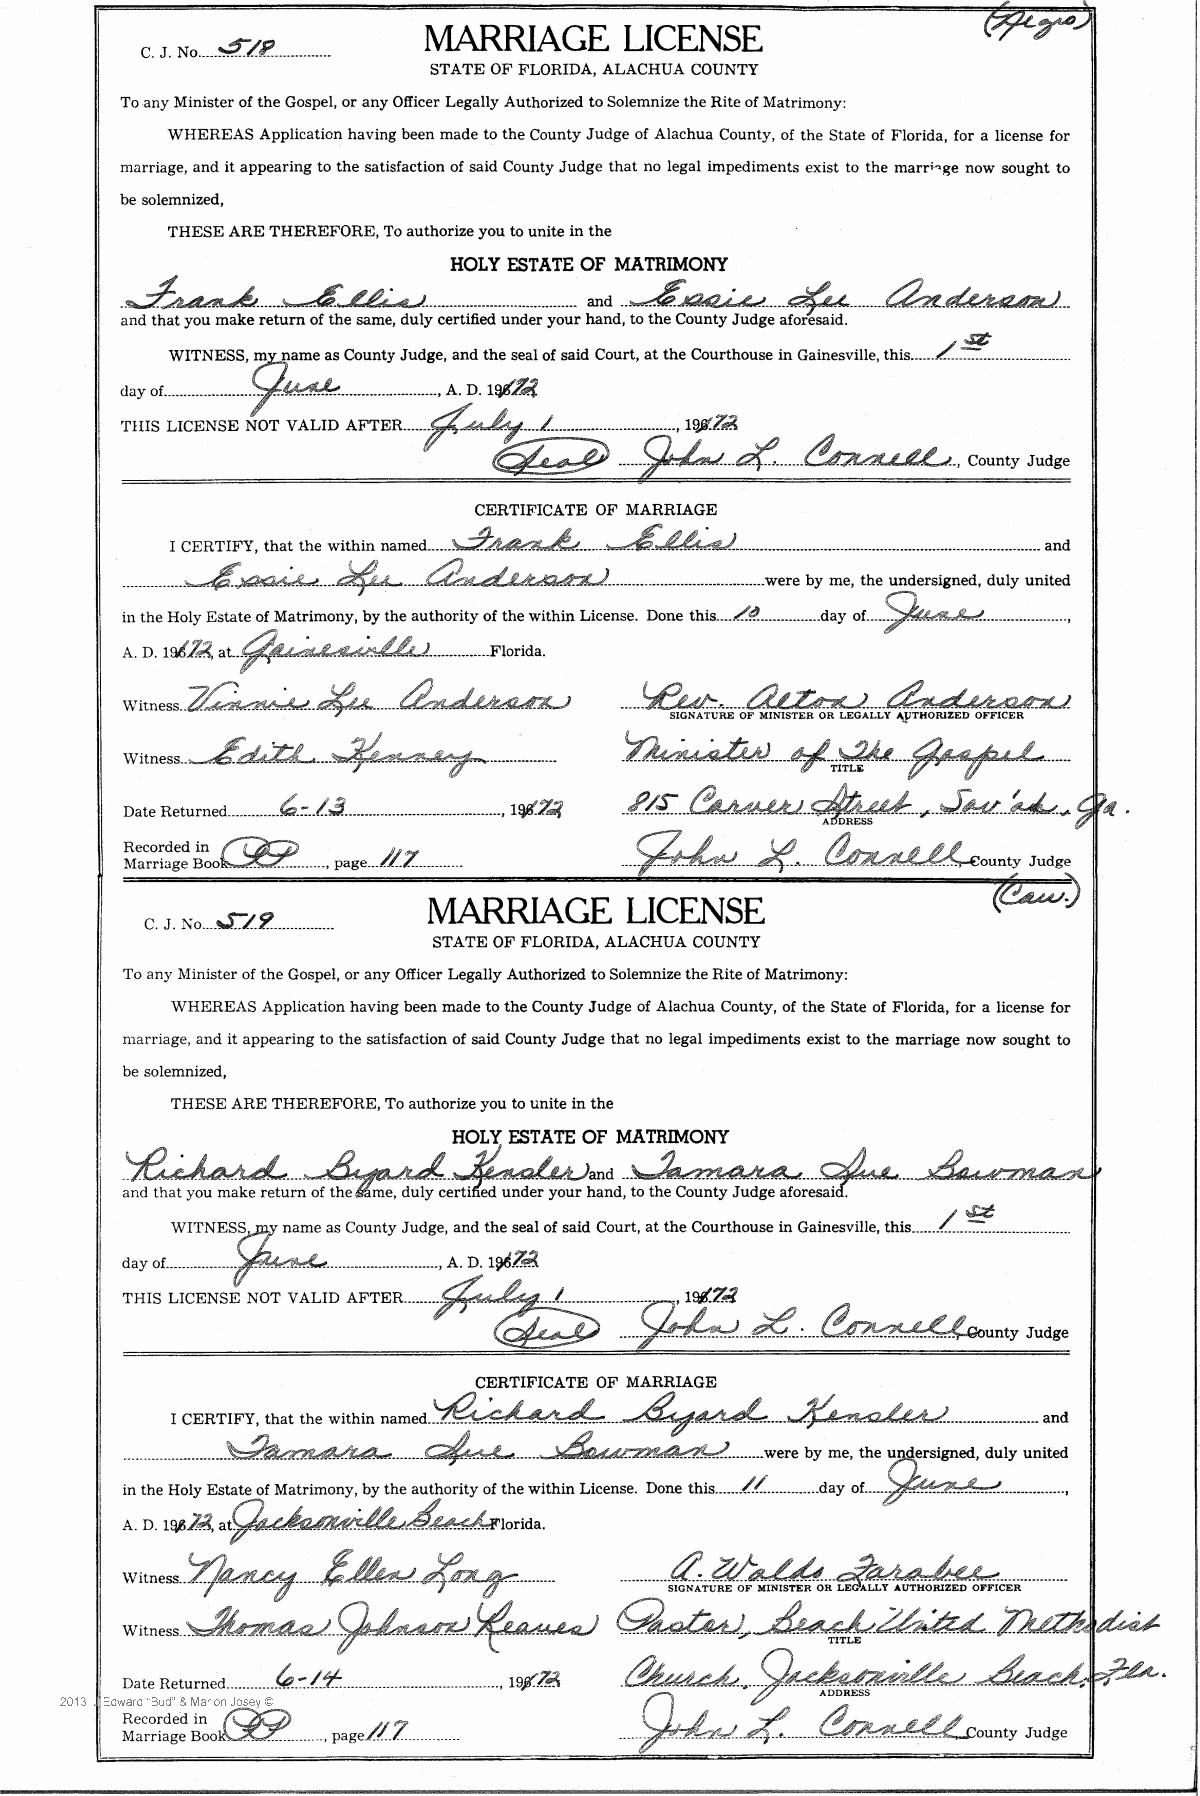 (Negro)
C. J. No. 518 MARRIAGE LICENSE
STATE OF FLORIDA, ALACHUA COUNTY
To any Minister of the Gospel, or any Officer Legally Authorized to Solemnize the Rite of Matrimony:
WHEREAS Application having been made to the County Judge of Alachua County, of the State of Florida, for a license for
marriage, and it appearing to the satisfaction of said County Judge that no legal impediments exist to the marriage now sought to
be solemnized,
THESE ARE THEREFORE, To authorize you to unite in the
HOLY ESTATE OF MATRIMONY
Frank Ellis and Essie Lee Anderson
and that you make return of the same, duly certified under your hand, to the County Judge aforesaid.
WITNESS, my name as County Judge, and the seal of said Court, at the Courthouse in Gainesville, this 1st
day of June, A. D. 1972
THIS LICENSE NOT VALID AFTER July 1, 1972
(Seal) John L. Connell, County Judge
CERTIFICATE OF MARRIAGE
I CERTIFY, that the within named Frank Ellis and
Essie Lee Anderson were by me, the undersigned, duly united
in the Holy Estate of Matrimony, by the authority of the within License. Done this 10 day of June,
A. D. 1972, at Gainesville Florida.
Witness Vinnie Lee Anderson Rev. Alton Anderson
SIGNATURE OF MINISTER OR LEGALLY AUTHORIZED OFFICER
Witness Edith Kenney Minister of The Gospel
TITLE
Date Returned 6-13, 1972 815 Carver Street, Sav'ah, Ga.
ADDRESS
Recorded in
Marriage Book, page 117 John L. Connell County Judge
(Cau.)
C. J. No. 519 MARRIAGE LICENSE
STATE OF FLORIDA, ALACHUA COUNTY
To any Minister of the Gospel, or any Officer Legally Authorized to Solemnize the Rite of Matrimony:
WHEREAS Application having been made to the County Judge of Alachua County, of the State of Florida, for a license for
marriage, and it appearing to the satisfaction of said County Judge that no legal impediments exist to the marriage now sought to
be solemnized,
THESE ARE THEREFORE, To authorize you to unite in the
HOLY ESTATE OF MATRIMONY
Richard Byard Kensler and Tamara Sue Bowman
and that you make return of the same, duly certified under your hand, to the County Judge aforesaid.
WITNESS, my name as County Judge, and the seal of said Court, at the Courthouse in Gainesville, this 1st
day of June, A. D. 1972
THIS LICENSE NOT VALID AFTER July 1, 1972
(Seal) John L. Connell County Judge
CERTIFICATE OF MARRIAGE
I CERTIFY, that the within named Richard Byard Kensler and
Tamara Sue Bowman were by me, the undersigned, duly united
in the Holy Estate of Matrimony, by the authority of the within License. Done this 11 day of June,
A. D. 1972, at Jacksonville Beach Florida.
Witness Nancy Ellen Long A. Waldo Farabee
SIGNATURE OF MINISTER OR LEGALLY AUTHORIZED OFFICER
Witness Thomas Johnson Reaves Pastor, Beach United Methodist
TITLE
Date Returned 6-14, 1972 Church, Jacksonville Beach, Fla.
ADDRESS
2013 Edward "Bud" & Marion Josey ©
Recorded in
Marriage Book, page 117 John L. Connell County Judge